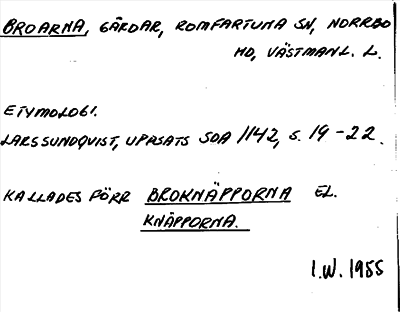 BROARNA, GÅRDAR, ROMFARTUNA SN, NORRBO
HD, VÄSTMANL. L.
ETYMOLOGI.
LARS SUNDQVIST, UPPSATS SOA 1142, S. 19-22.
KALLADES FÖRR BROKNÄPPORNA EL.
KNÄPPORNA.
I.W. 1955